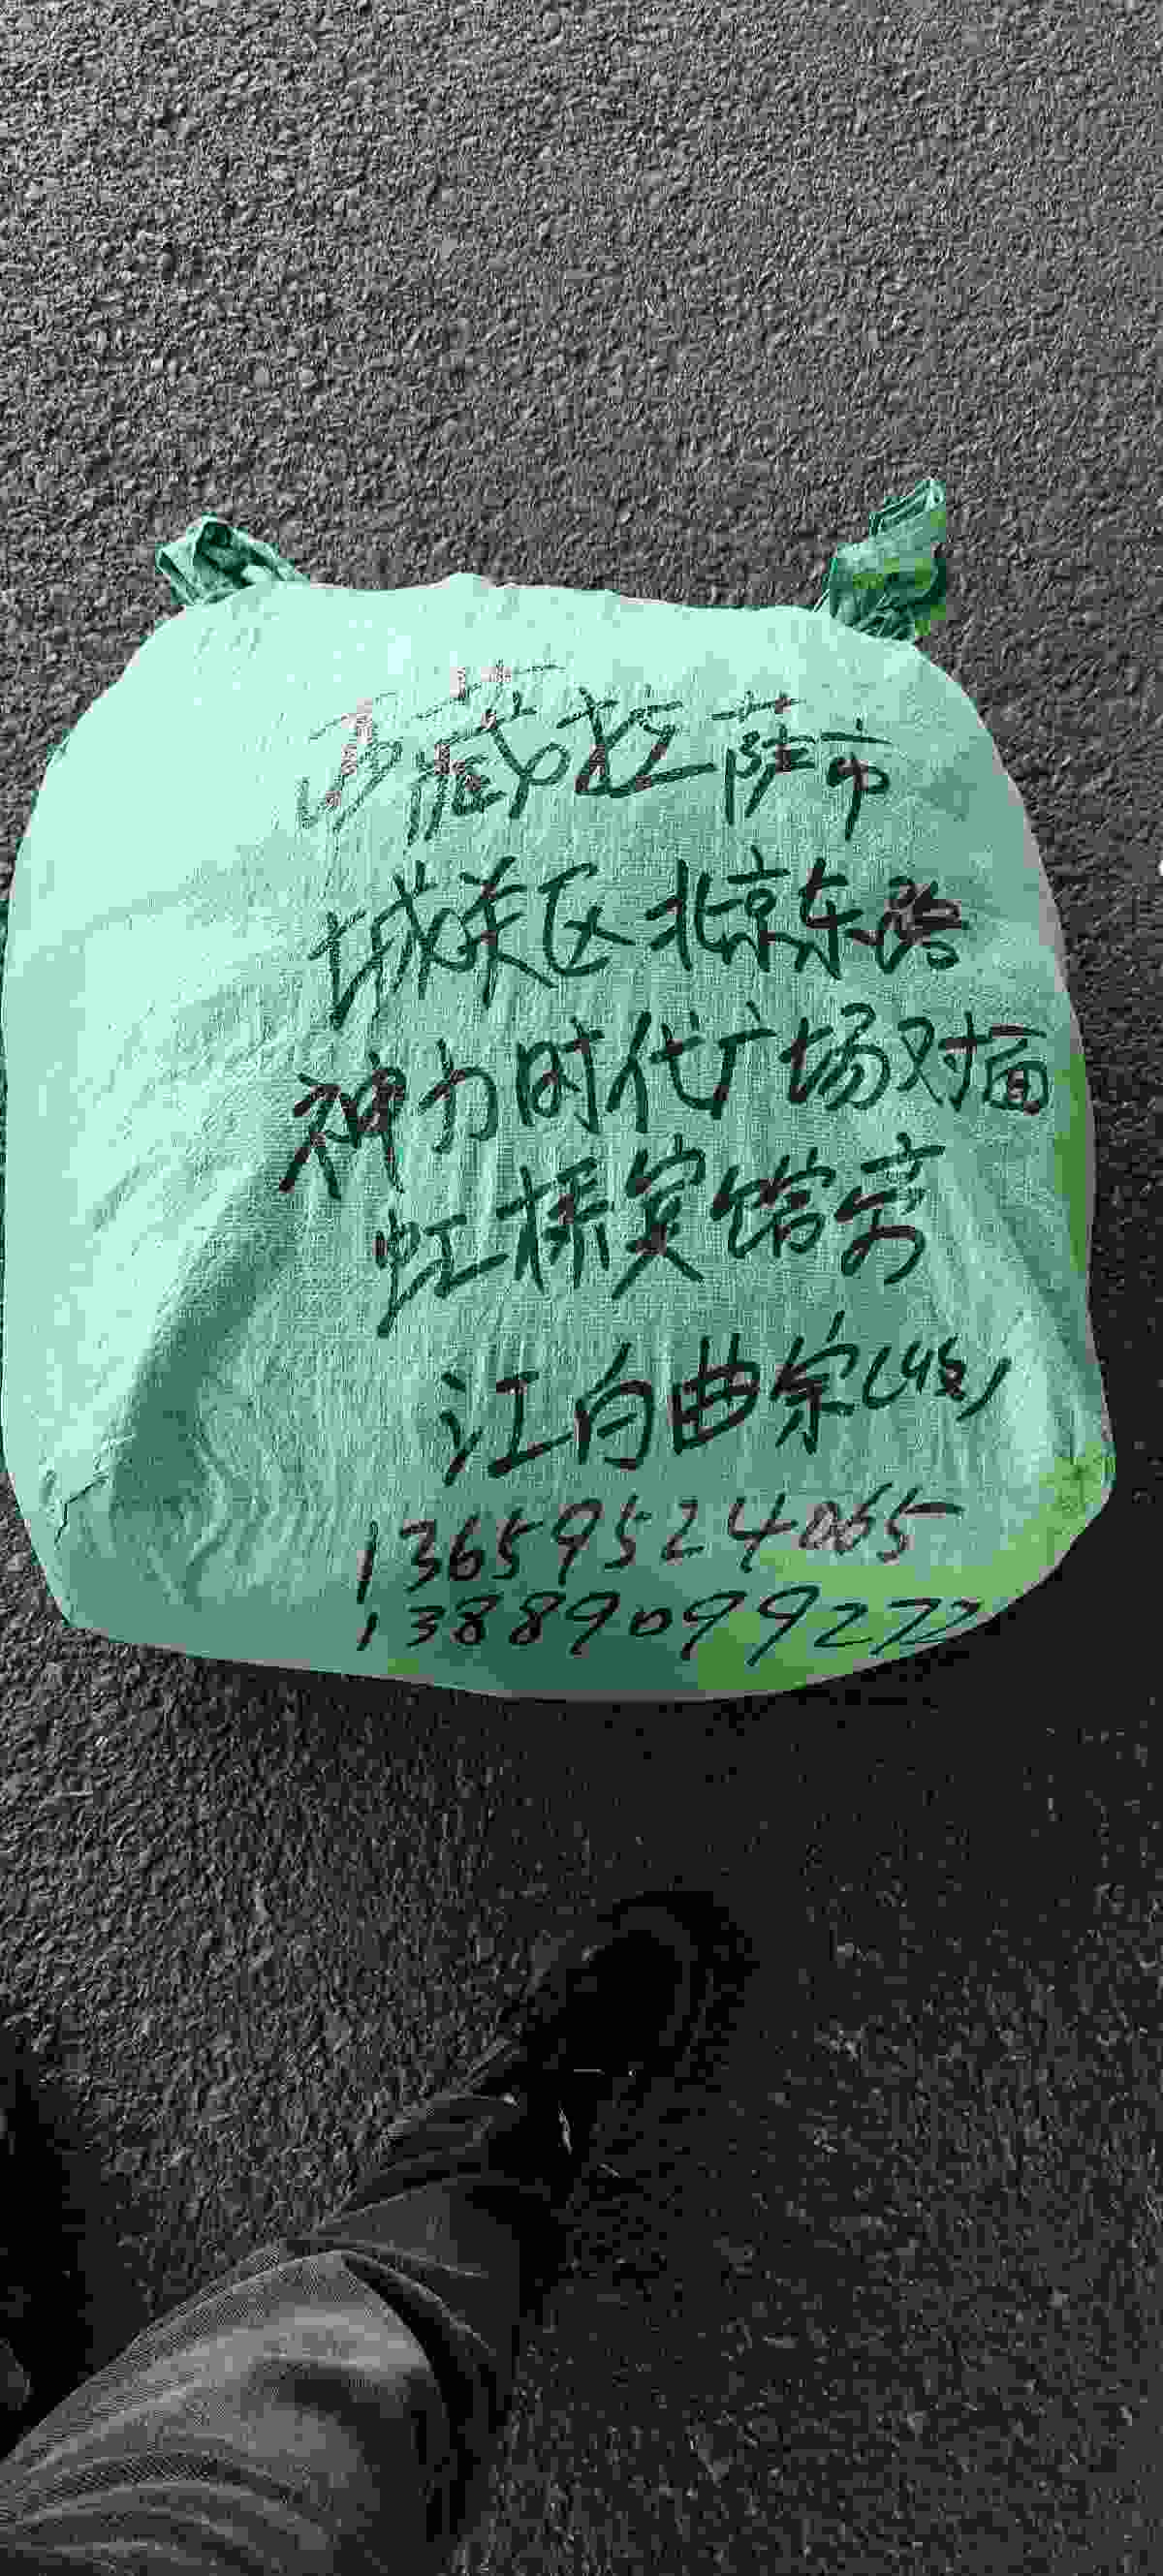 西藏拉萨市
城关区北京东路
神力时代广场对面
虹桥宾馆旁
江白曲宗(收)
13659524065
13889099272